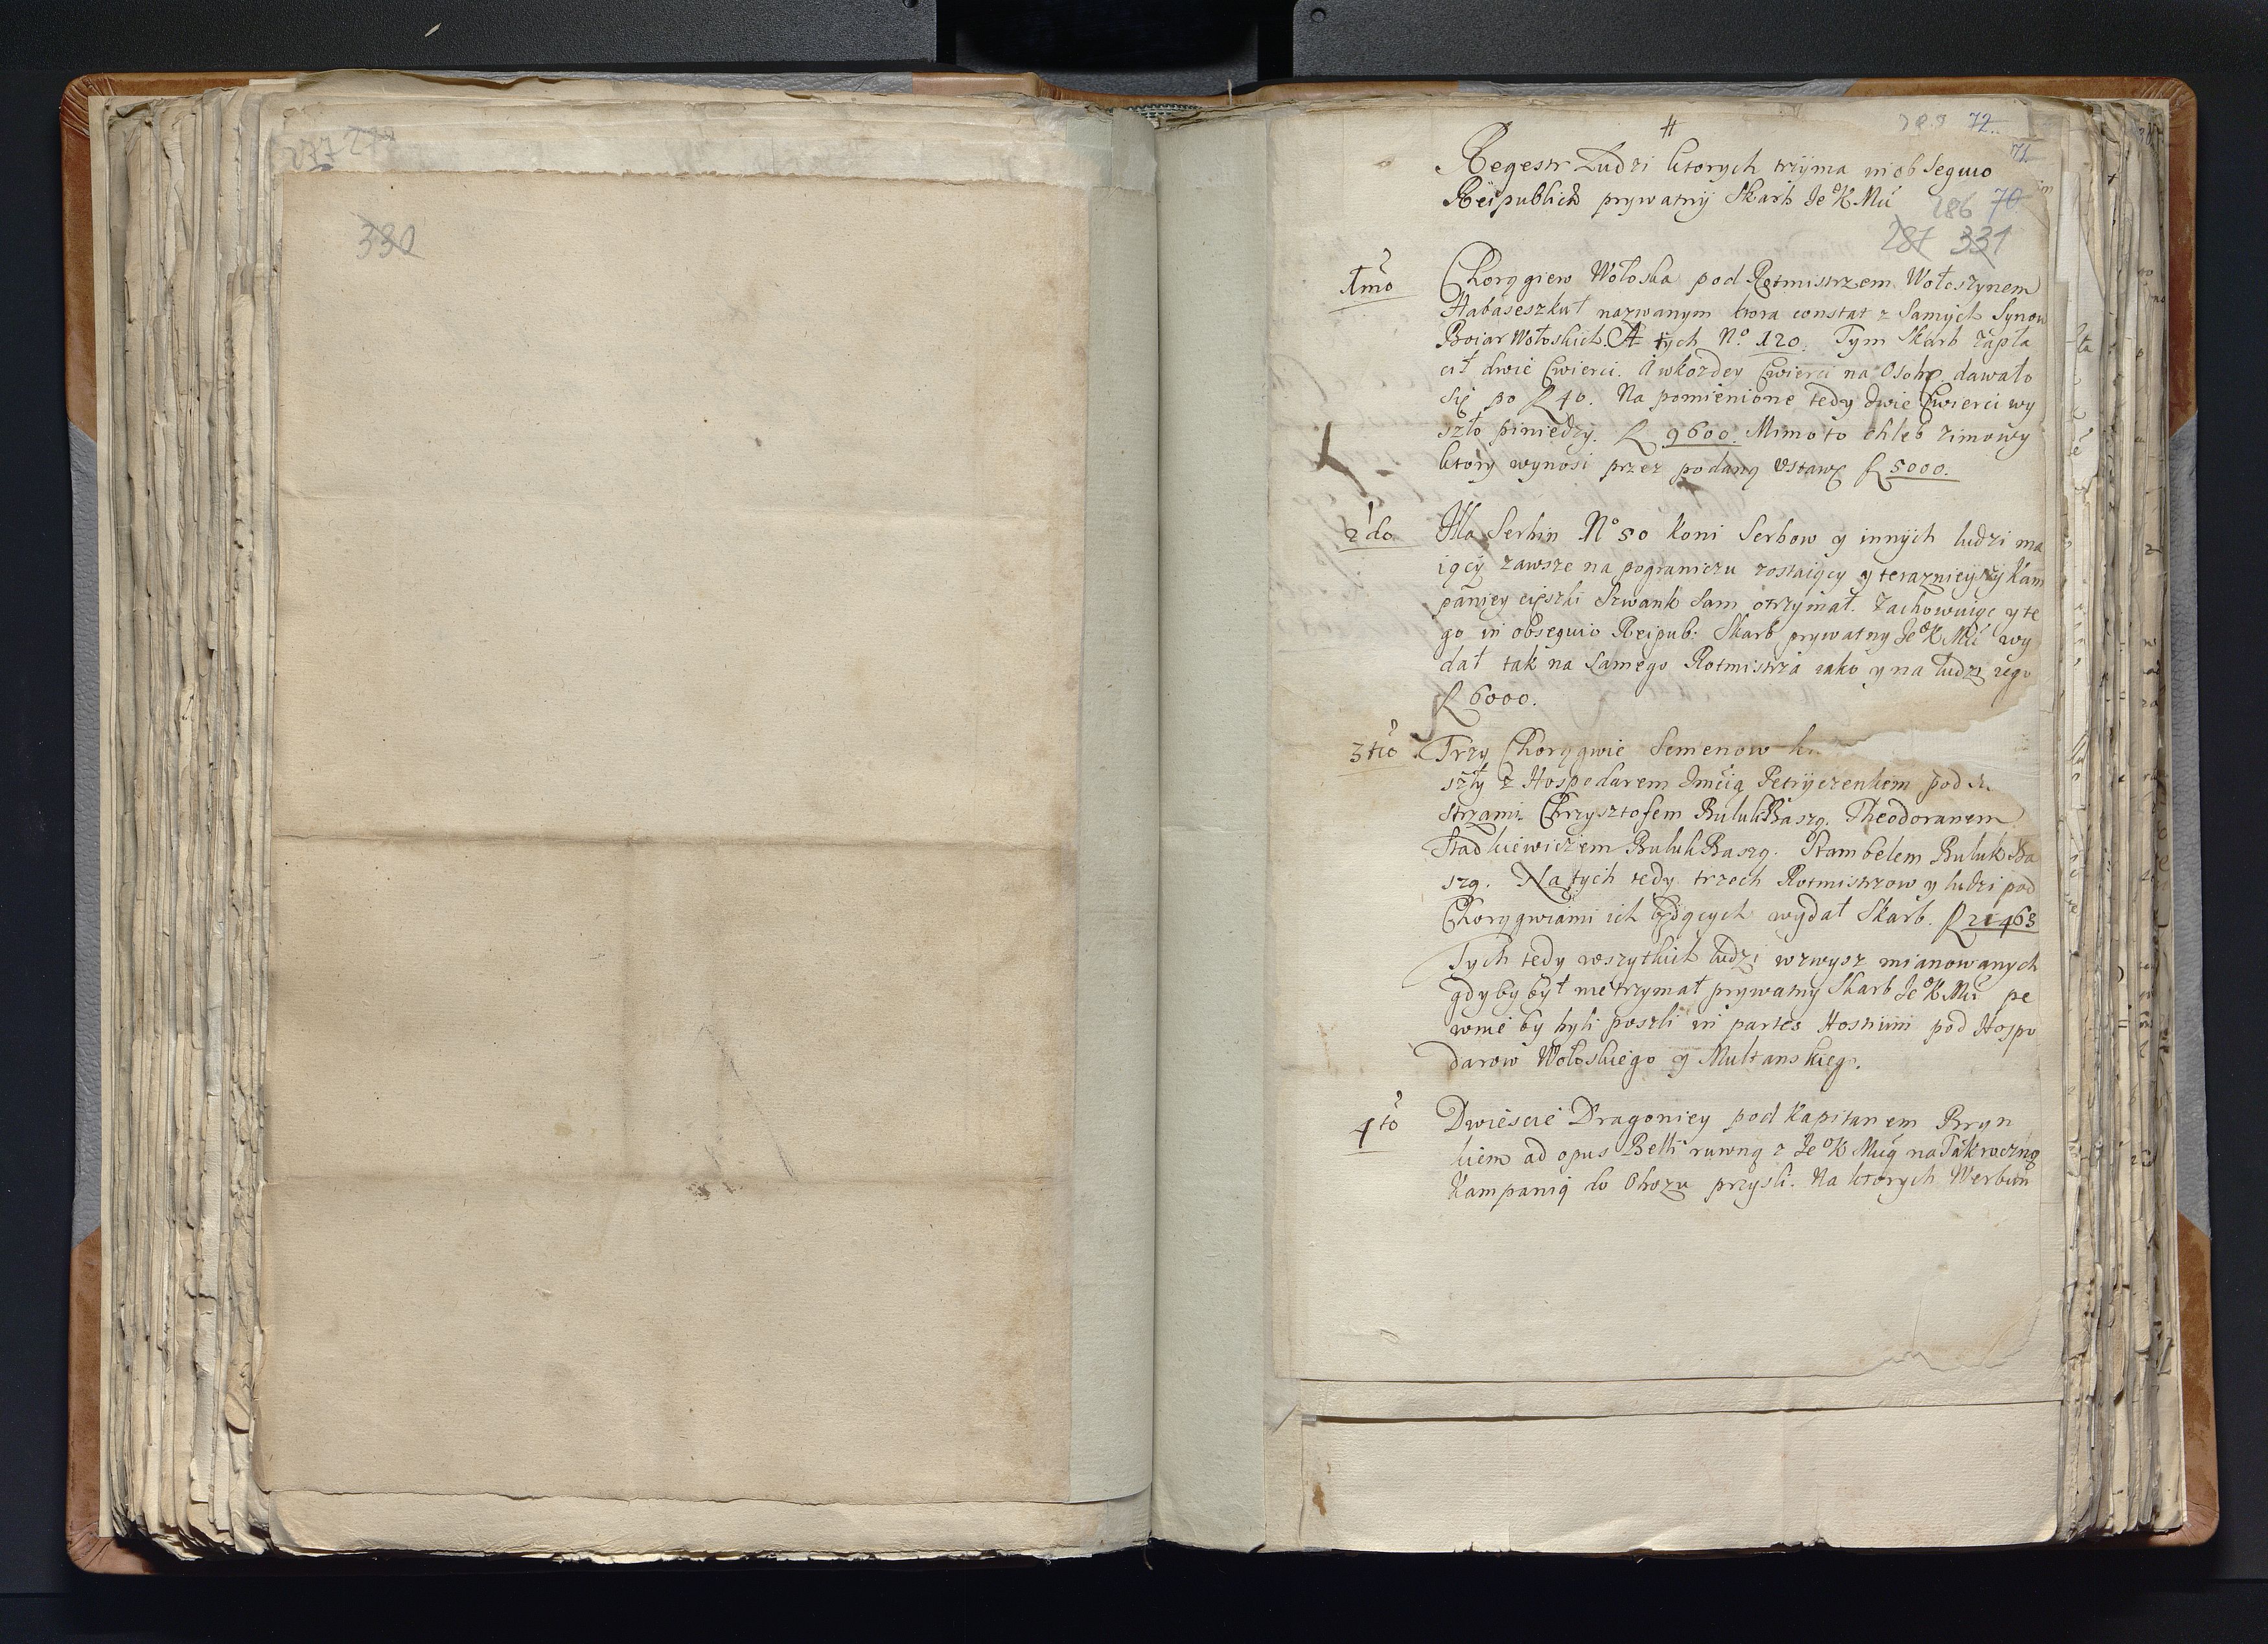 277 278
330
#
289 72
71
Regestr Ludzi ktorych trzÿma in obsequio
Reipublicæ prywatnÿ Skarb Je°KMci
286 70
287 331
1mo Chorągiew Wołoska pod Rotmistrzem Wołoszynem
Habaseszkuł nazwanym ktora constat z Samÿch Synow
Boiar Wołoskich. A tych No. 120. Tym Skarb zapła
cił dwie Cwierci. A w kożdey Cwierci na Osobę dawało
się po f 40. Na pomienione tedy dwie Cwierci wy
szło piniędzy. f 9600. Mimo to chleb zimowy
ktory wynosi przez podaną Ustawę f 5000.
2do Serbin No 50 koni Serbow y innÿch ludzi ma
iący zawsze na pograniczu zostaiący y teraznieyszÿ kam
paniey ciężki Szwank sam otrzymał. Zachowuiąc y te
go in obsequio Reipub: Skarb prywatny Je°KMci wy
dał tak na samego Rotmistrza iako y na ludzi iego
f 6000.
3tio Trzy Chorągwie Semenow
szłÿ z Hospodarem Jmcią Petryczenkem pod
strzami Chrzysztofem BulukBaszą. Theodoranem
Stadkiewiczem BulukBaszą. Stambelem BulukBa
szą. Na tych tedy trzech Rotmistrzow y ludzi pod
Chorągwiami ich będących wydał Skarb. f 21463
Tych tedy wszytkich ludzi wzwysz mianowanych
gdy by był nie trzymał prywatny Skarb Je°KMci pe
wnie by byli poszli in partes Hostium pod Hospo
darow Wołoskiego y Multanskiego.
4to Dwiescie Dragoniey pod Kapitanem Bryn
kiem ad opus Belli ruwną z Je°KMcią na Tak roczną
Kampanią do Obozu przysli. Na ktorych Werbun